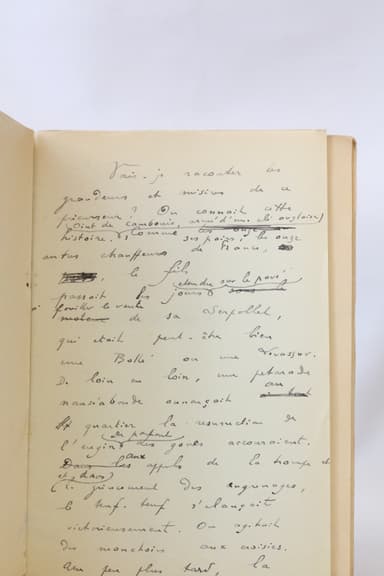 Vais-je raconter les
grandeurs et misères de ce
précurseur ? On connaît cette
Oint de cambouis, armé d'une clé anglaise,
histoire. Comme ses pairs, les onze
onze
autres chauffeurs de France,
le fils
étendu sur le pavé
passait les jours
à fouiller le ventre
moteur de sa Serpollet,
qui était peut-être bien
une Bollé ou une Levassor.
De loin en loin, une pétarade
nauséabonde annonçait au
quartier la résurrection de
l'engin
des enfants
des gones accouraient.
Dans les aux appels de la trompe et
et chaos
le grincement des engrenages,
le teuf-teuf s'élançait
victorieusement. On agitait
des mouchoirs aux croisées.
Un peu plus tard, la